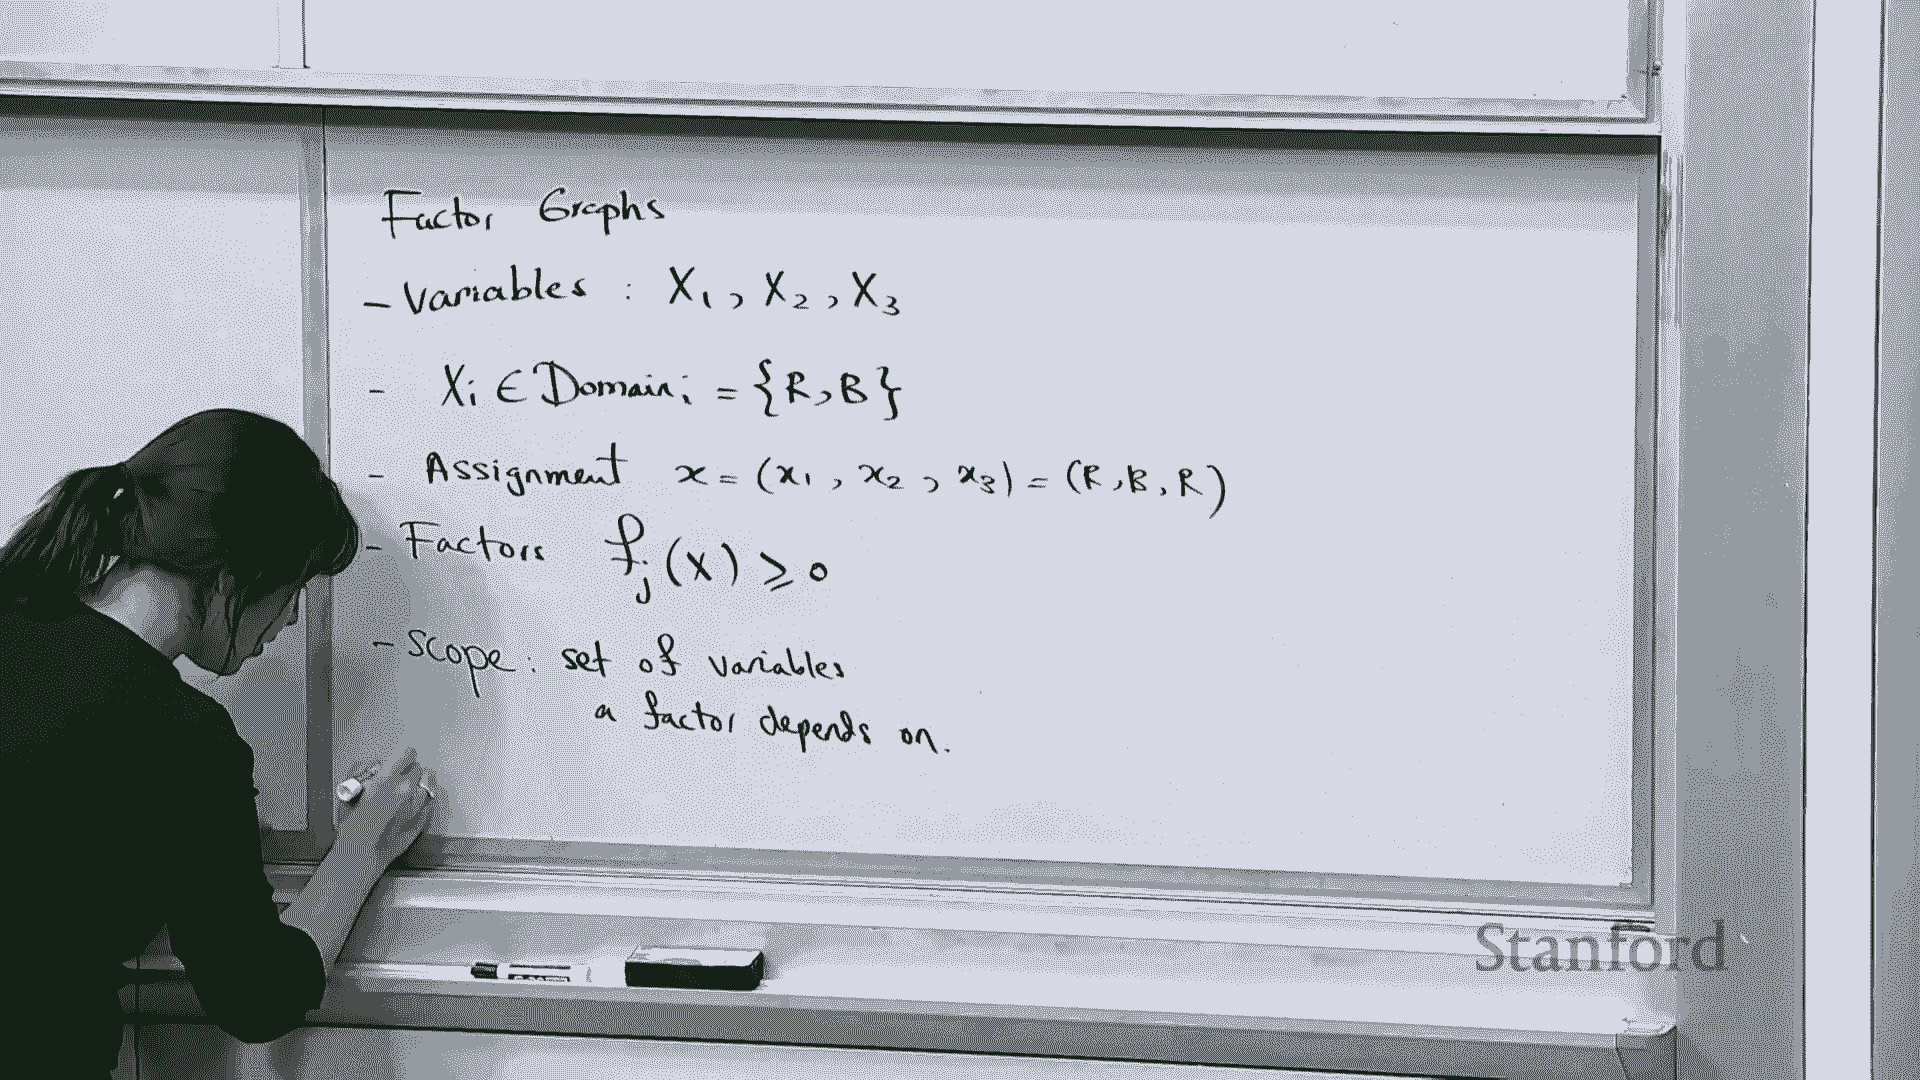 Factor Graphs
- Variables : X₁, X₂, X₃
- Xᵢ ∈ Domainᵢ = {R, B}
- Assignment x = (x₁, x₂, x₃) = (R, B, R)
- Factors fⱼ(X) ≥ 0
- Scope: set of variables
a factor depends on.
Stanford